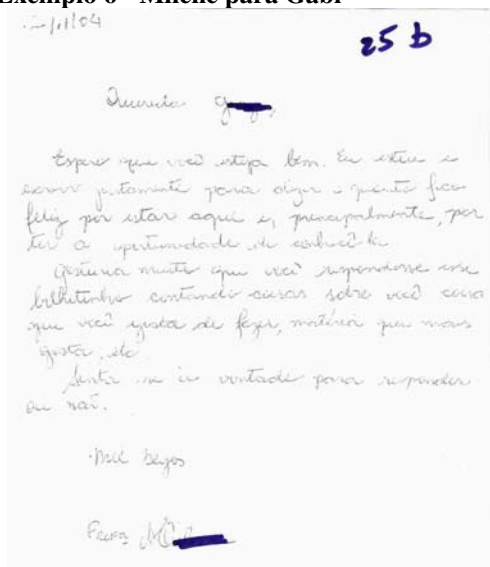 Exemplo 6 - Miche para Gabi
/11/04
25 b
Querida G
Espero que você esteja bem. Eu estou e
escrevo justamente para dizer o quanto fico
feliz por estar aqui e, principalmente, por
ter a oportunidade de conhecê-la
Gostaria muito que você respondesse esse
bilhetinho contando coisas sobre você coisa
que você gosta de fazer, matéria que mais
gosta, etc
Sinta-se à vontade para responder
ou não.
Mil beijos